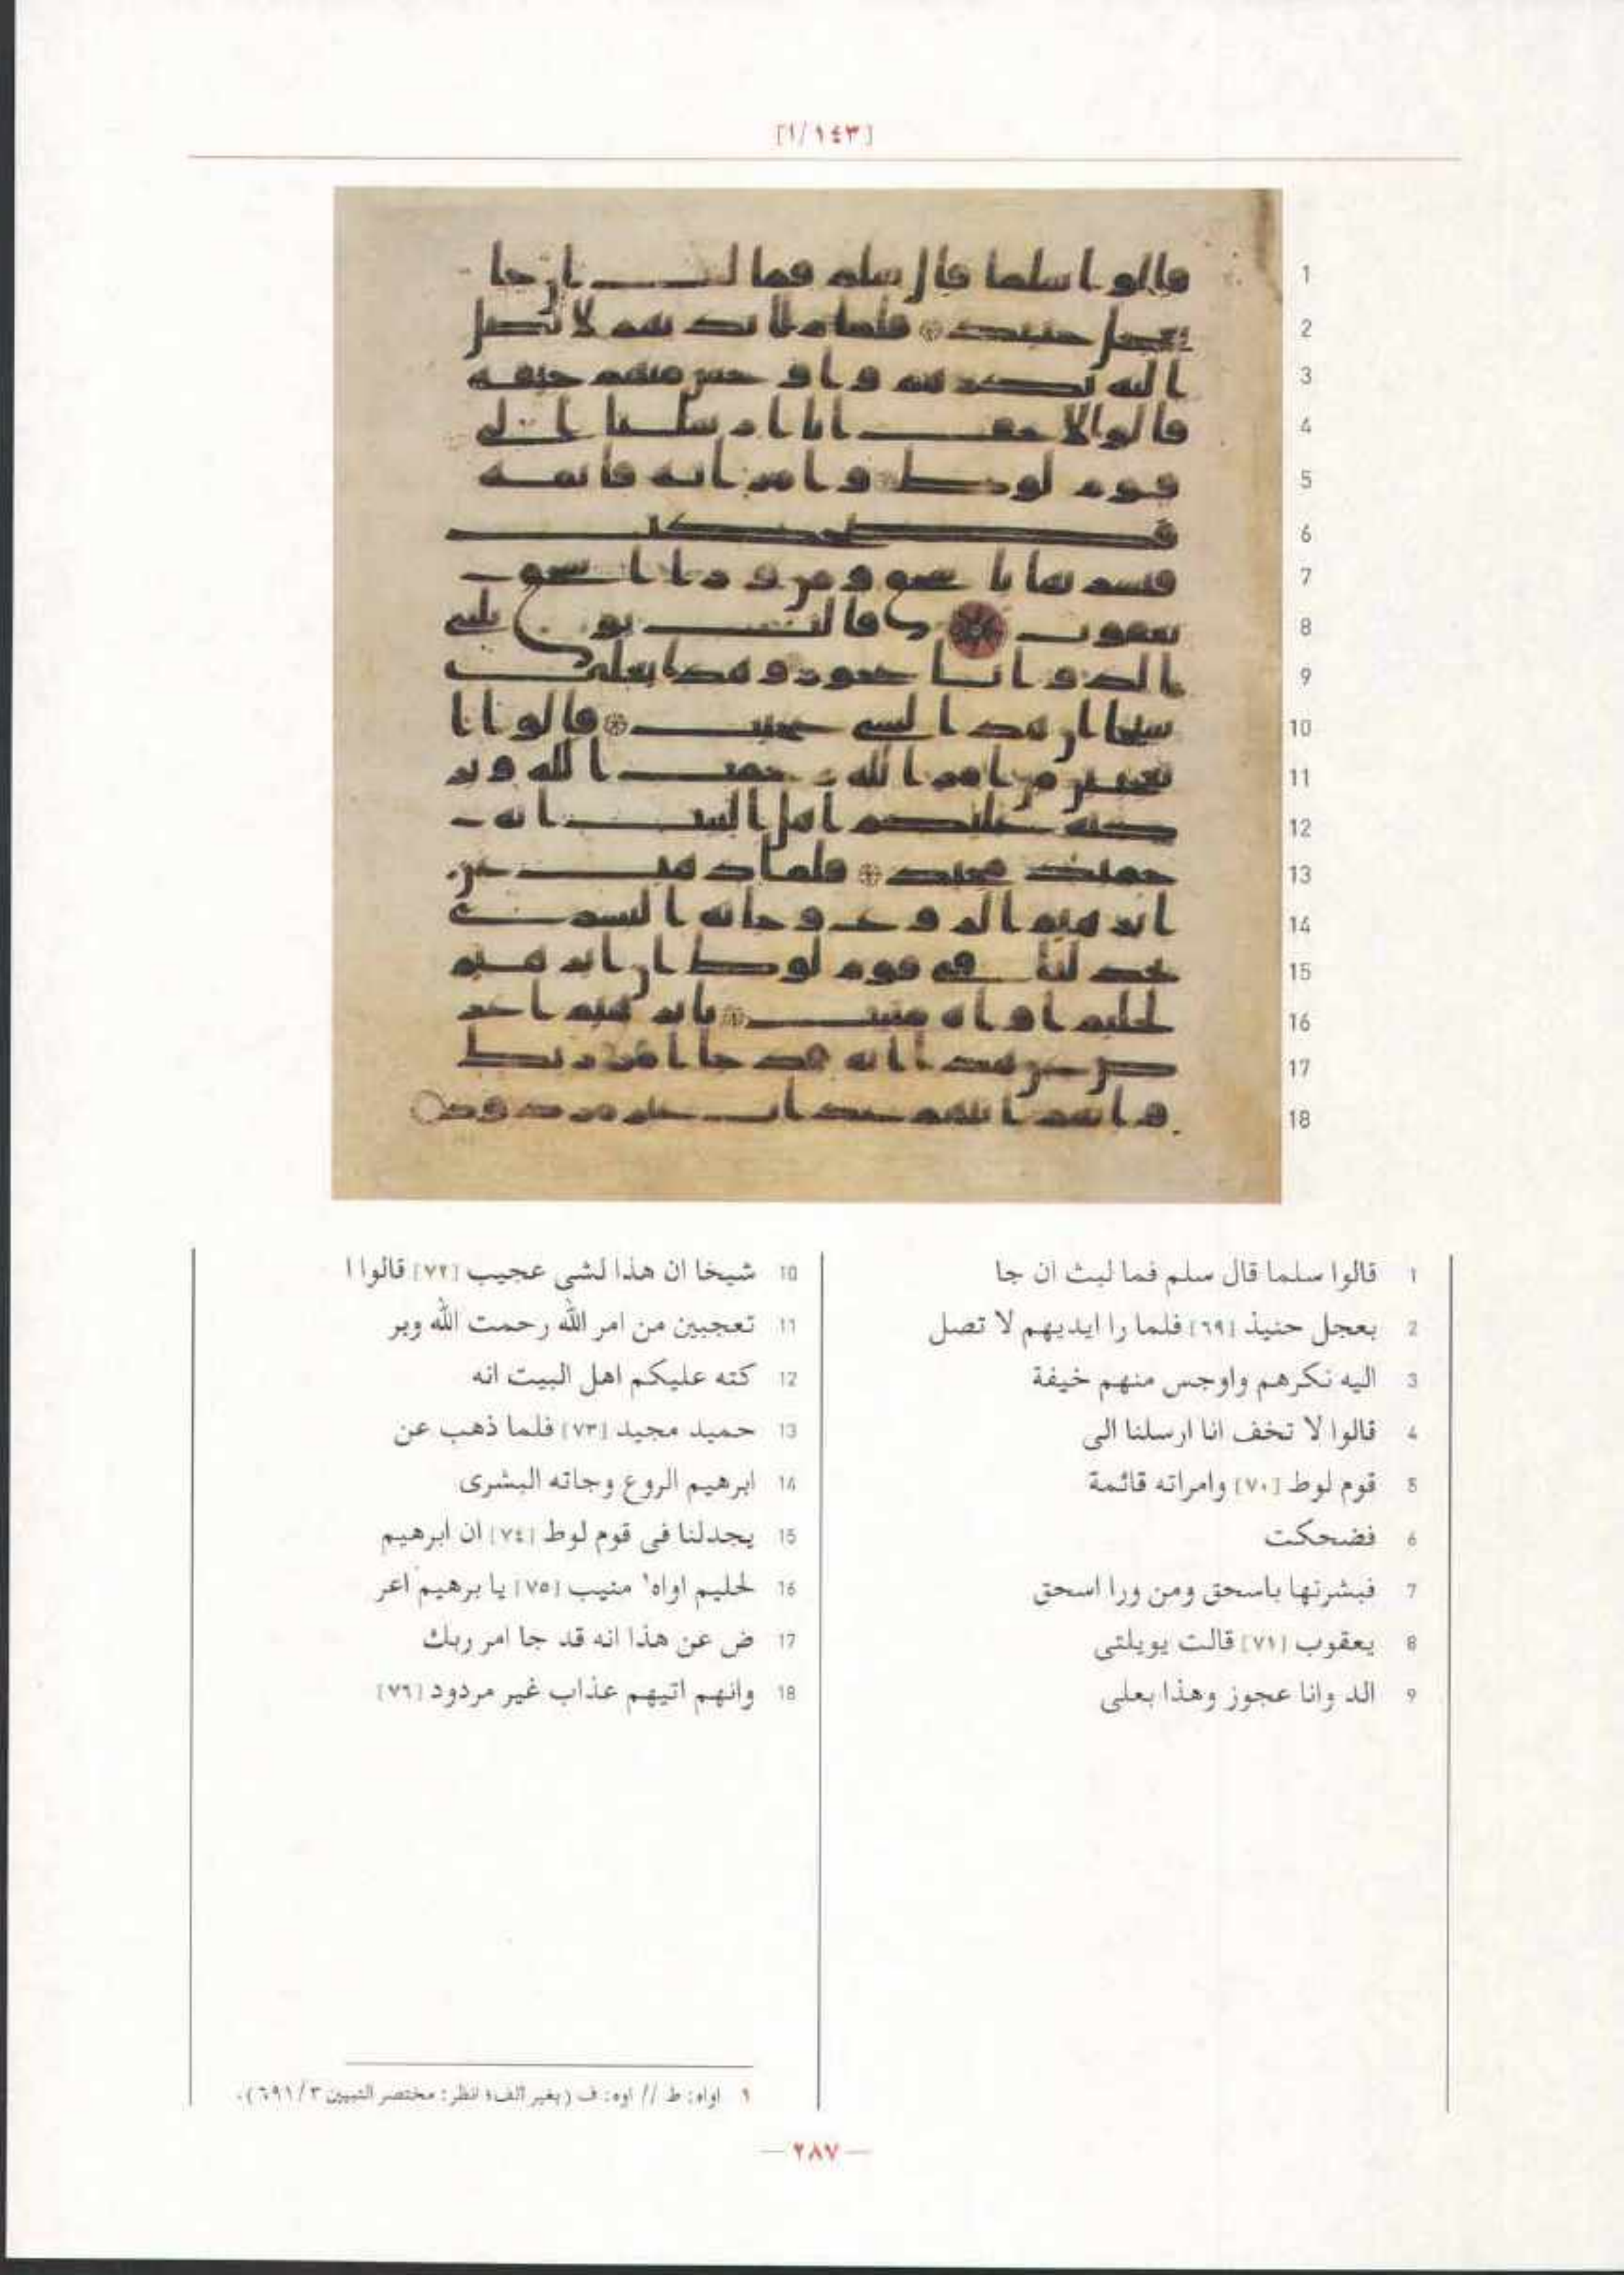 [١٤٣/١]
1 قالوا سلما قال سلم فما لبث ان جا
2 بعجل حنيذ [٦٩] فلما را ايديهم لا تصل
3 اليه نكرهم واوجس منهم خيفة
4 قالوا لا تخف انا ارسلنا الى
5 قوم لوط [٧٠] وامراته قائمة
6 فضحكت
7 فبشرنها باسحق ومن ورا اسحق
8 يعقوب [٧١] قالت يويلتى
9 الد وانا عجوز وهذا بعلى
10 شيخا ان هذا لشى عجيب [٧٢] قالوا ا
11 تعجبين من امر الله رحمت الله وبر
12 كته عليكم اهل البيت انه
13 حميد مجيد [٧٣] فلما ذهب عن
14 ابرهيم الروع وجاته البشرى
15 يجدلنا فى قوم لوط [٧٤] ان ابرهيم
16 لحليم اواه١ منيب [٧٥] يا برهيم اعر
17 ض عن هذا انه قد جا امر ربك
18 وانهم اتيهم عذاب غير مردود [٧٦]
١ اواه: ط // اوه: ف (بغير الف؛ انظر: مختصر التبيين ٦٩١/٣).
— ٢٨٧ —